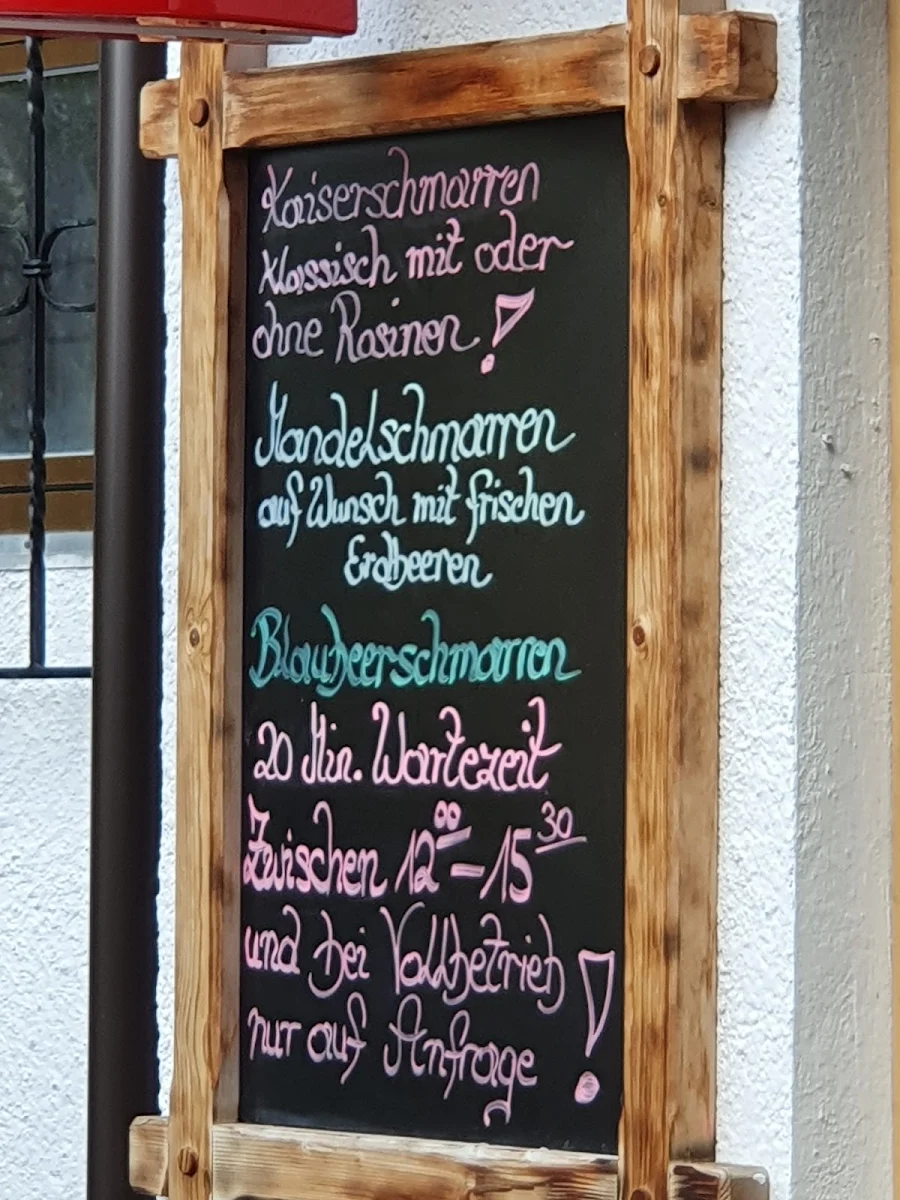 Kaiserschmarren
klassisch mit oder
ohne Rosinen!
Mandelschmarren
auf Wunsch mit frischen
Erdbeeren
Blaubeerschmarren
20 Min. Wartezeit
Zwischen 12⁰⁰ – 15³⁰
und bei Vollbetrieb
nur auf Anfrage!